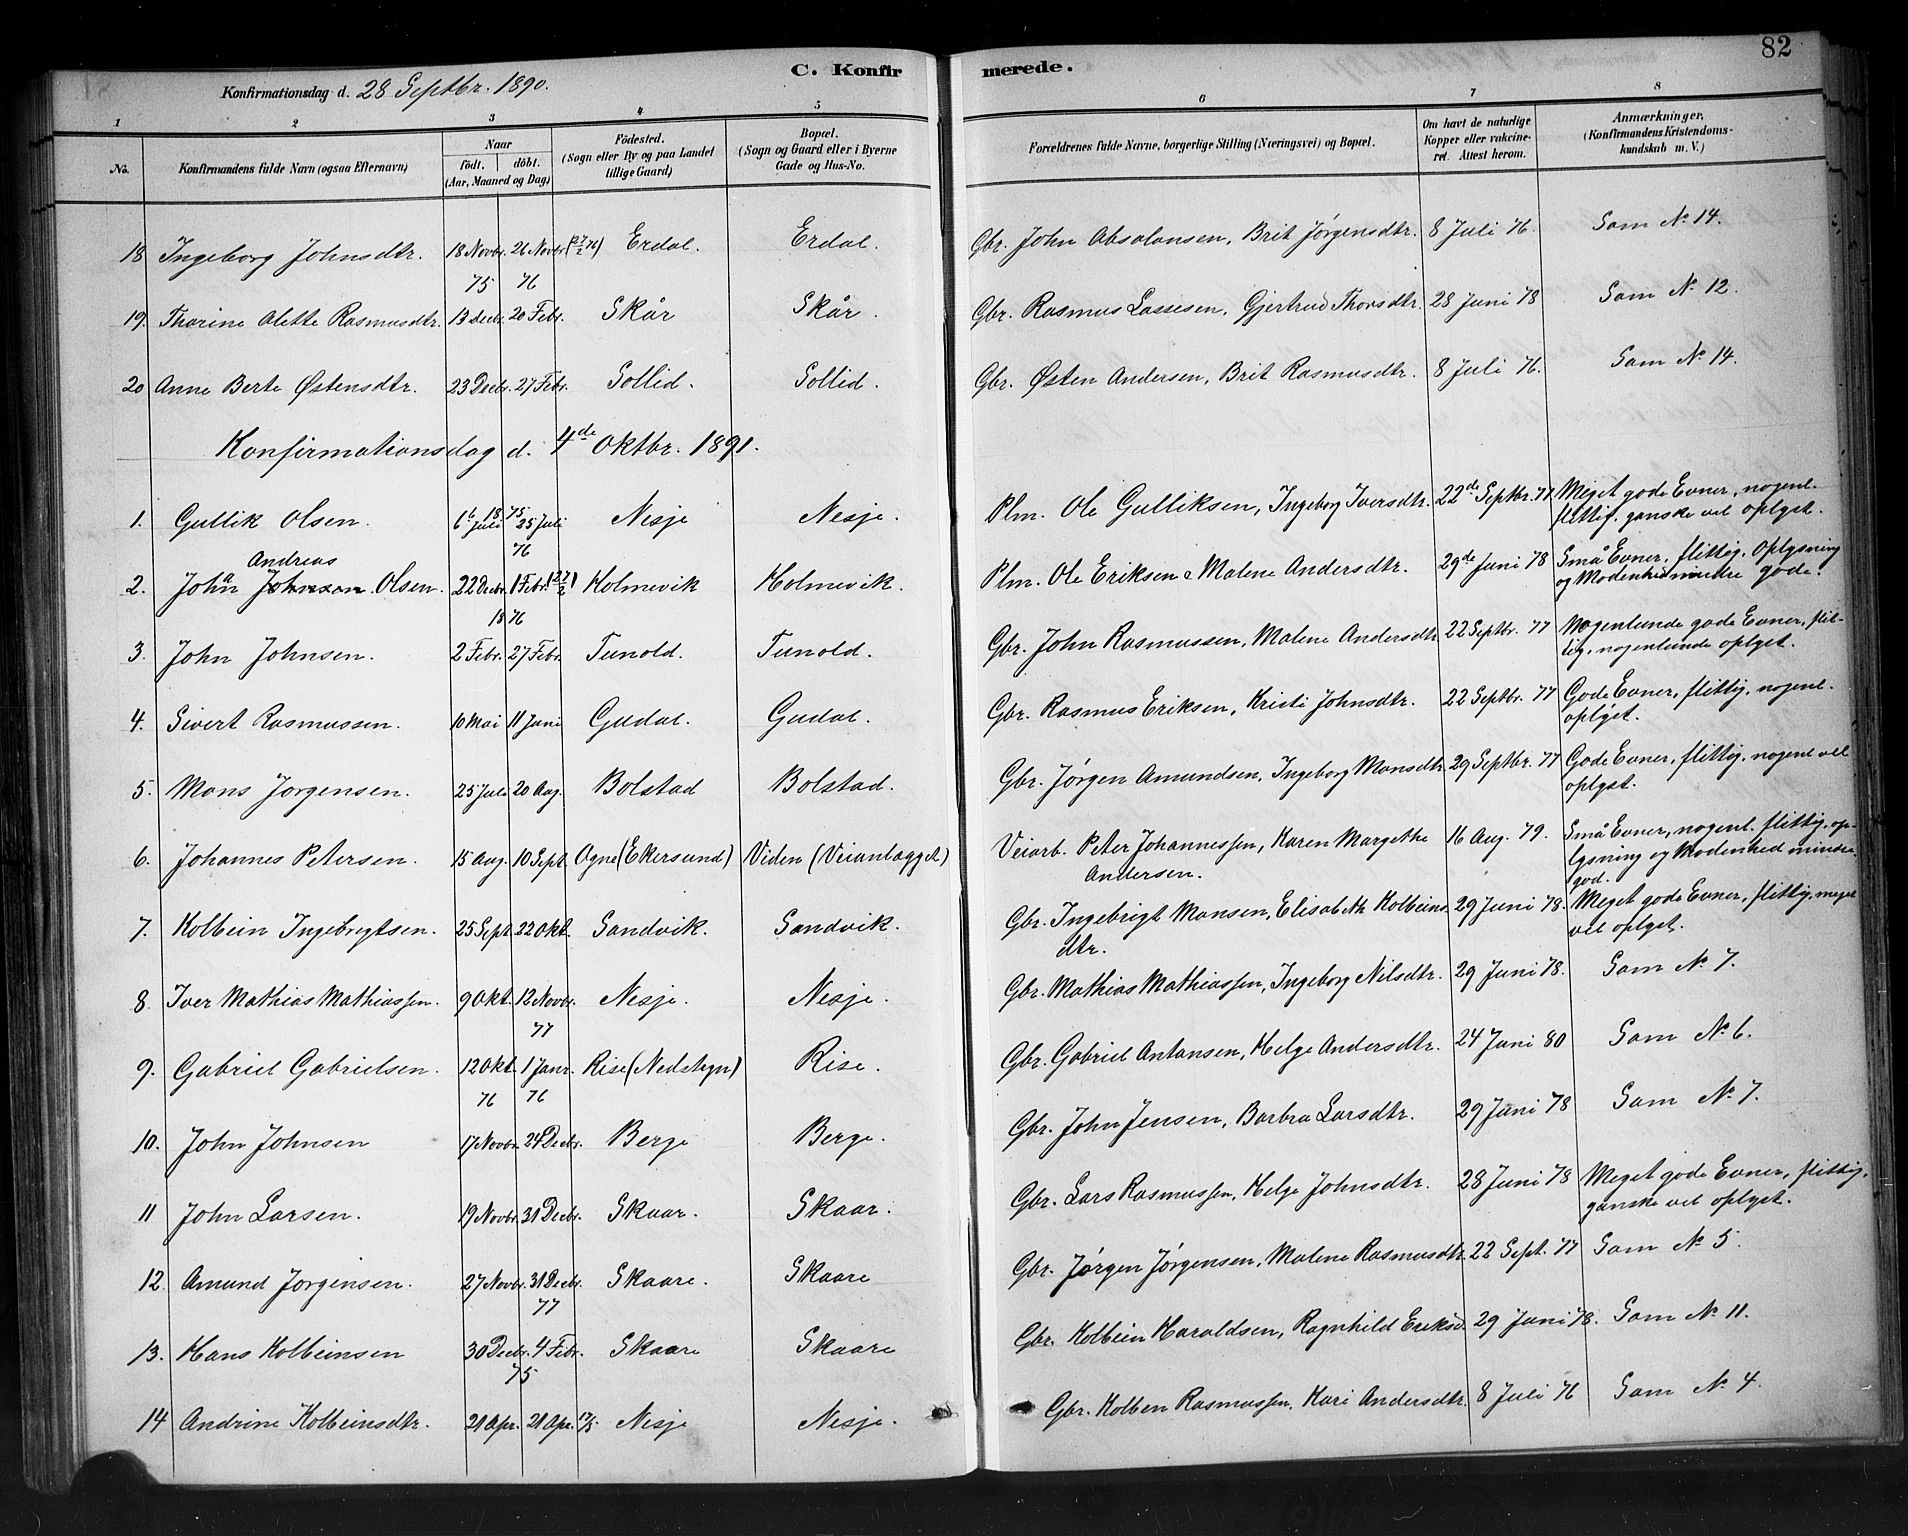 82
C. Konfirmerede.
Konfirmationsdag d. 28 Septbr. 1890.
1 2 3 4 5 6 7 8
No. Konfirmandens fulde Navn (ogsaa Efternavn) Naar födt, döbt. (Aar, Maaned og Dag) Födested. (Sogn eller By og paa Landet tillige Gaard) Bopæl. (Sogn og Gaard eller i Byerne Gade og Hus-No. Forældrenes fulde Navne, borgerlige Stilling (Næringsvei) og Bopæl. Om havt de naturlige Kopper eller vakcineret. Attest herom. Anmærkninger, (Konfirmandens Kristendomskundskab m. V.)
18 Ingeborg Johnsdtr. 18 Novbr. 26 Novbr. (27/2 76) Erdal. Erdal. Gbr. John Absalonsen, Brit Jørgensdtr. 8 Juli 76. Som No 14.
75 76
19. Thorine Olette Rasmusdtr. 13 Decbr. 20 Febr. Skår Skår. Gbr. Rasmus Lassesen, Gjertrud Thorsdtr. 28 Juni 78 Som No 12.
20 Anne Berte Østensdtr. 23 Decbr. 27 Febr. Sollid. Sollid. Gbr. Østen Andersen, Brit Rasmusdtr. 8 Juli 76. Som No 14.
Konfirmationsdag d. 4de Oktbr. 1891.
18 75
1. Gullik Olsen. 6 Juli 25 Juli Nesje Nesje. Plm. Ole Gulliksen, Ingeborg Iversdtr. 22de Septbr. 77 Meget gode Evner, nogenl. flittig. ganske vel oplyst.
76
Andreas
2. Johan Johnsen Olsen. 22 Decbr. 1 Febr. (27/2) Holmevik Holmevik. Plm. Ole Eriksen & Malene Andersdtr. 29de Juni 78 Små Evner, flittig. Oplysning og Modenhed mindre gode.
18 76
3. John Johnsen. 2 Febr. 27 Febr. Tunold. Tunold. Gbr. John Rasmussen, Malene Andersdtr. 22 Septbr. 77 Nogenlunde gode Evner, flittig, nogenlunde oplyst.
4. Sivert Rasmussen. 10 Mai 11 Juni Gudal. Gudal. Gbr. Rasmus Eriksen, Kristi Johnsdtr. 22 Septbr. 77 Gode Evner, flittig, nogenl. oplyst.
5. Mons Jørgensen. 25 Juli 20 Aug. Bolstad Bolstad. Gbr. Jørgen Amundsen, Ingeborg Monsdtr. 29 Septbr. 77 Gode Evner, flittig, nogenl vel oplyst.
6. Johannes Petersen. 15 Aug. 10 Sept. Ogne (Ekersund) Viden (Veianlægget) Veiarb. Peter Johannessen, Karen Margethe Andersen. 16 Aug. 79. Små Evner, nogenl. flittig. oplysning og Modenhed mindre god.
7. Kolbein Ingebrigtsen. 25 Sept. 22 Okt. Sandvik. Sandvik. Gbr. Ingebrigt Monsen, Elisabeth Kolbeinsdtr. 29 Juni 78. Meget gode Evner, flittig, meget vel oplyst.
8. Iver Mathias Mathiassen. 9 Okt. 12 Novbr. Nesje. Nesje. Gbr. Mathias Mathiassen, Ingeborg Nilsdtr. 29 Juni 78. Som No 7.
77
9. Gabriel Gabrielsen. 12 Okt. 1 Janr. Rise (Nedstryn) Rise. Gbr. Gabriel Antonsen, Helge Andersdtr. 24 Juni 80 Som No 6.
76 76
10. John Johnsen 17 Novbr. 24 Decbr. Berge Berge. Gbr. John Jensen, Barbra Larsdtr. 29 Juni 78 Som No 7.
11 John Larsen. 19 Novbr. 31 Decbr. Skaar. Skaar. Gbr. Lars Rasmussen, Helge Johnsdtr. 28 Juni 78 Meget gode Evner, flittig, ganske vel oplyst.
12. Amund Jørgensen. 27 Novbr. 31 Decbr. Skaare. Skaare Gbr. Jørgen Jørgensen, Malene Rasmusdtr. 22 Sept. 77 Som No 5.
77
13. Hans Kolbeinsen 30 Decbr. 4 Febr. Skaare Skaare Gbr. Kolbein Haraldsen, Ragnhild Eriksd. 29 Juni 78. Som No 11.
75
14 Andrine Kolbeinsdtr. 21 Apr. 21 Apr. Nesje Nesje. Gbr. Kolben Rasmussen, Kari Andersdtr. 8 Juli 76 Som No 4.